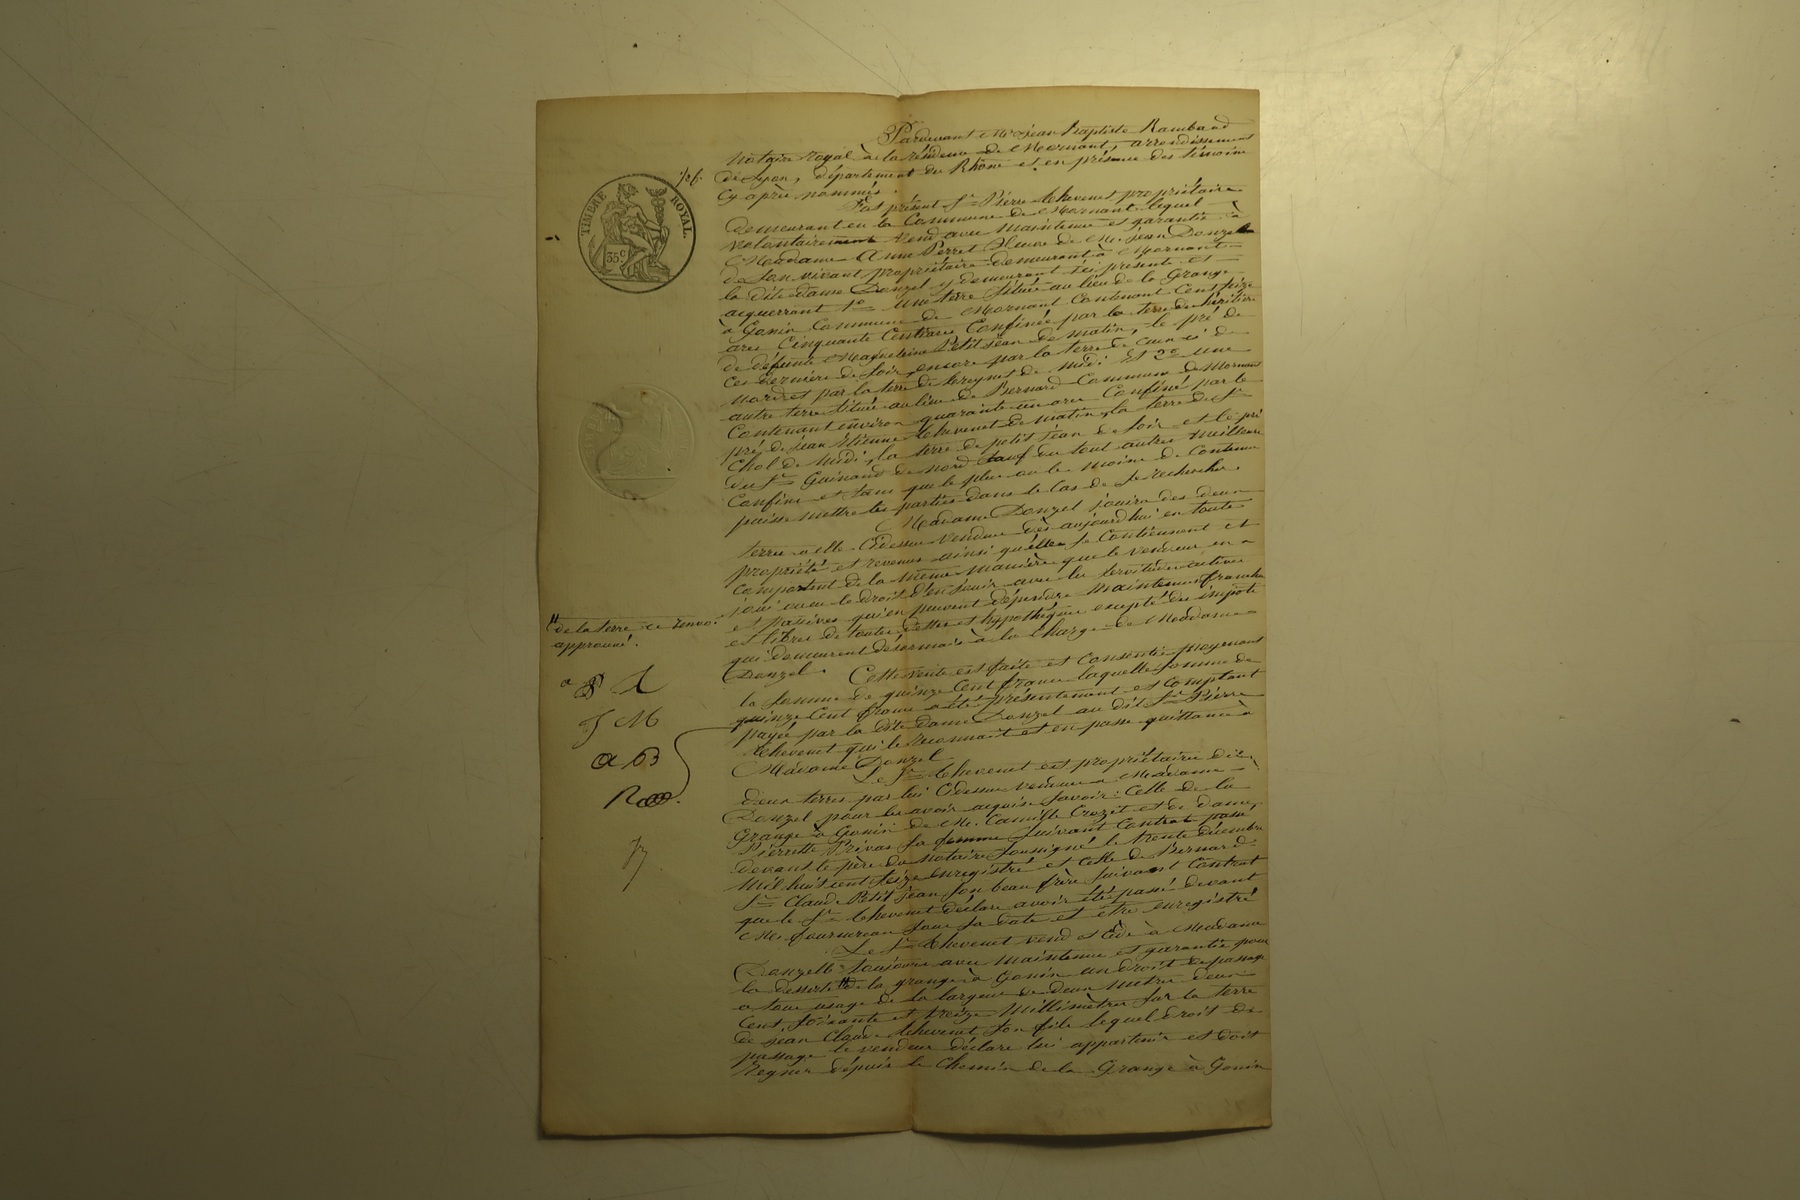 Pardevant Me Jean Baptiste Rambaud
notaire royal à la résidence de Mornant, arrondissement
de Lyon, département du Rhône et en présence des témoins
cy après nommés.
Fut présent Sr Pierre Thevenet propriétaire
demeurant en la Commune de Mornant lequel
volontairement vend avec maintenue et garantie à
Madame Anne Perret Veuve de M. Jean Donzel
de son vivant propriétaire demeurant à Mornant
la dite dame Donzel y demeurant ici présente et
acquerrant 1o une terre située au lieu de la Grange
à Gonin Commune de Mornant Contenant Cent seize
ares Cinquante Centiares Confinée par la terre des héritiers
de défunte Magdeleine Petit Jean de matin, le pré de
ces derniers de soir, encore par la terre de ceux-ci de
nord et par la terre de de midi. Et 2o une
autre terre située au lieu de Bernard Commune de Mornant
Contenant environ quarante un ares Confiné par le
pré de Jean Etienne Thevenet de matin, la terre du Sr
Chol de midi, la terre de petit Jean de soir et le pré
du Sr Guinand de nord sauf ou tout autres meilleurs
Confins et sans que le plus ou le moins de Contenue
puisse mettre les parties dans le Cas de se rechercher.
Madame Donzel jouira des deux
terres à elle Cidessus vendues dès aujourd'hui en toute
propriété et revenus ainsi qu'elles se Contiennent et
comportent de la même manière que le vendeur en a
joui avec le droit d'en jouir avec les servitudes actives
et passives qui en peuvent dépendre maintenues franches
et libres de toutes dettes et hypothèques excepté des impots
qui demeurent désormais à la Charge de Madame
Donzel. Cette vente est faite et Consentie moyennant
la somme de quinze Cent francs laquelle somme de
quinze Cent francs a été présentement et Comptant
payée par la dite dame Donzel au dit Sr Pierre
Thevenet qui le reconnait et en passe quittance à
Madame Donzel
Le Sr Thevenet est propriétaire des
deux terres par lui Cidessus vendues à Madame
Donzel pour les avoir acquises savoir: Celle de la
Grange à Gonin de M. Camille Crozet et de dame
Pierrette Privas sa femme suivant Contrat passé
devant le père du notaire soussigné le trente décembre
mil huit cent seize enregistré et Celle de Bernard
Sr Claude Petit Jean son beau frère suivant Contrat
que le Sr Thevenet déclare avoir été passé devant
Me fournereau sous sa date et être enregistré
Le Sr Thevenet vend et Cède à Madame
Donzel toujours avec maintenue et garantie pour
la desserte # de la grange à Gonin un droit de passage
à tous usage de la largeur de deux mètres deux
Cent soixante et treize Millimètres sur la terre
de Jean Claude Thevenet son fils lequel droit de
passage le vendeur déclare lui appartenir et doit
Regner depuis le Chemin de la Grange à Gonin
TIMBRE ROYAL.
35c
# de la terre ce renvoi
approuvé.
J M
a B